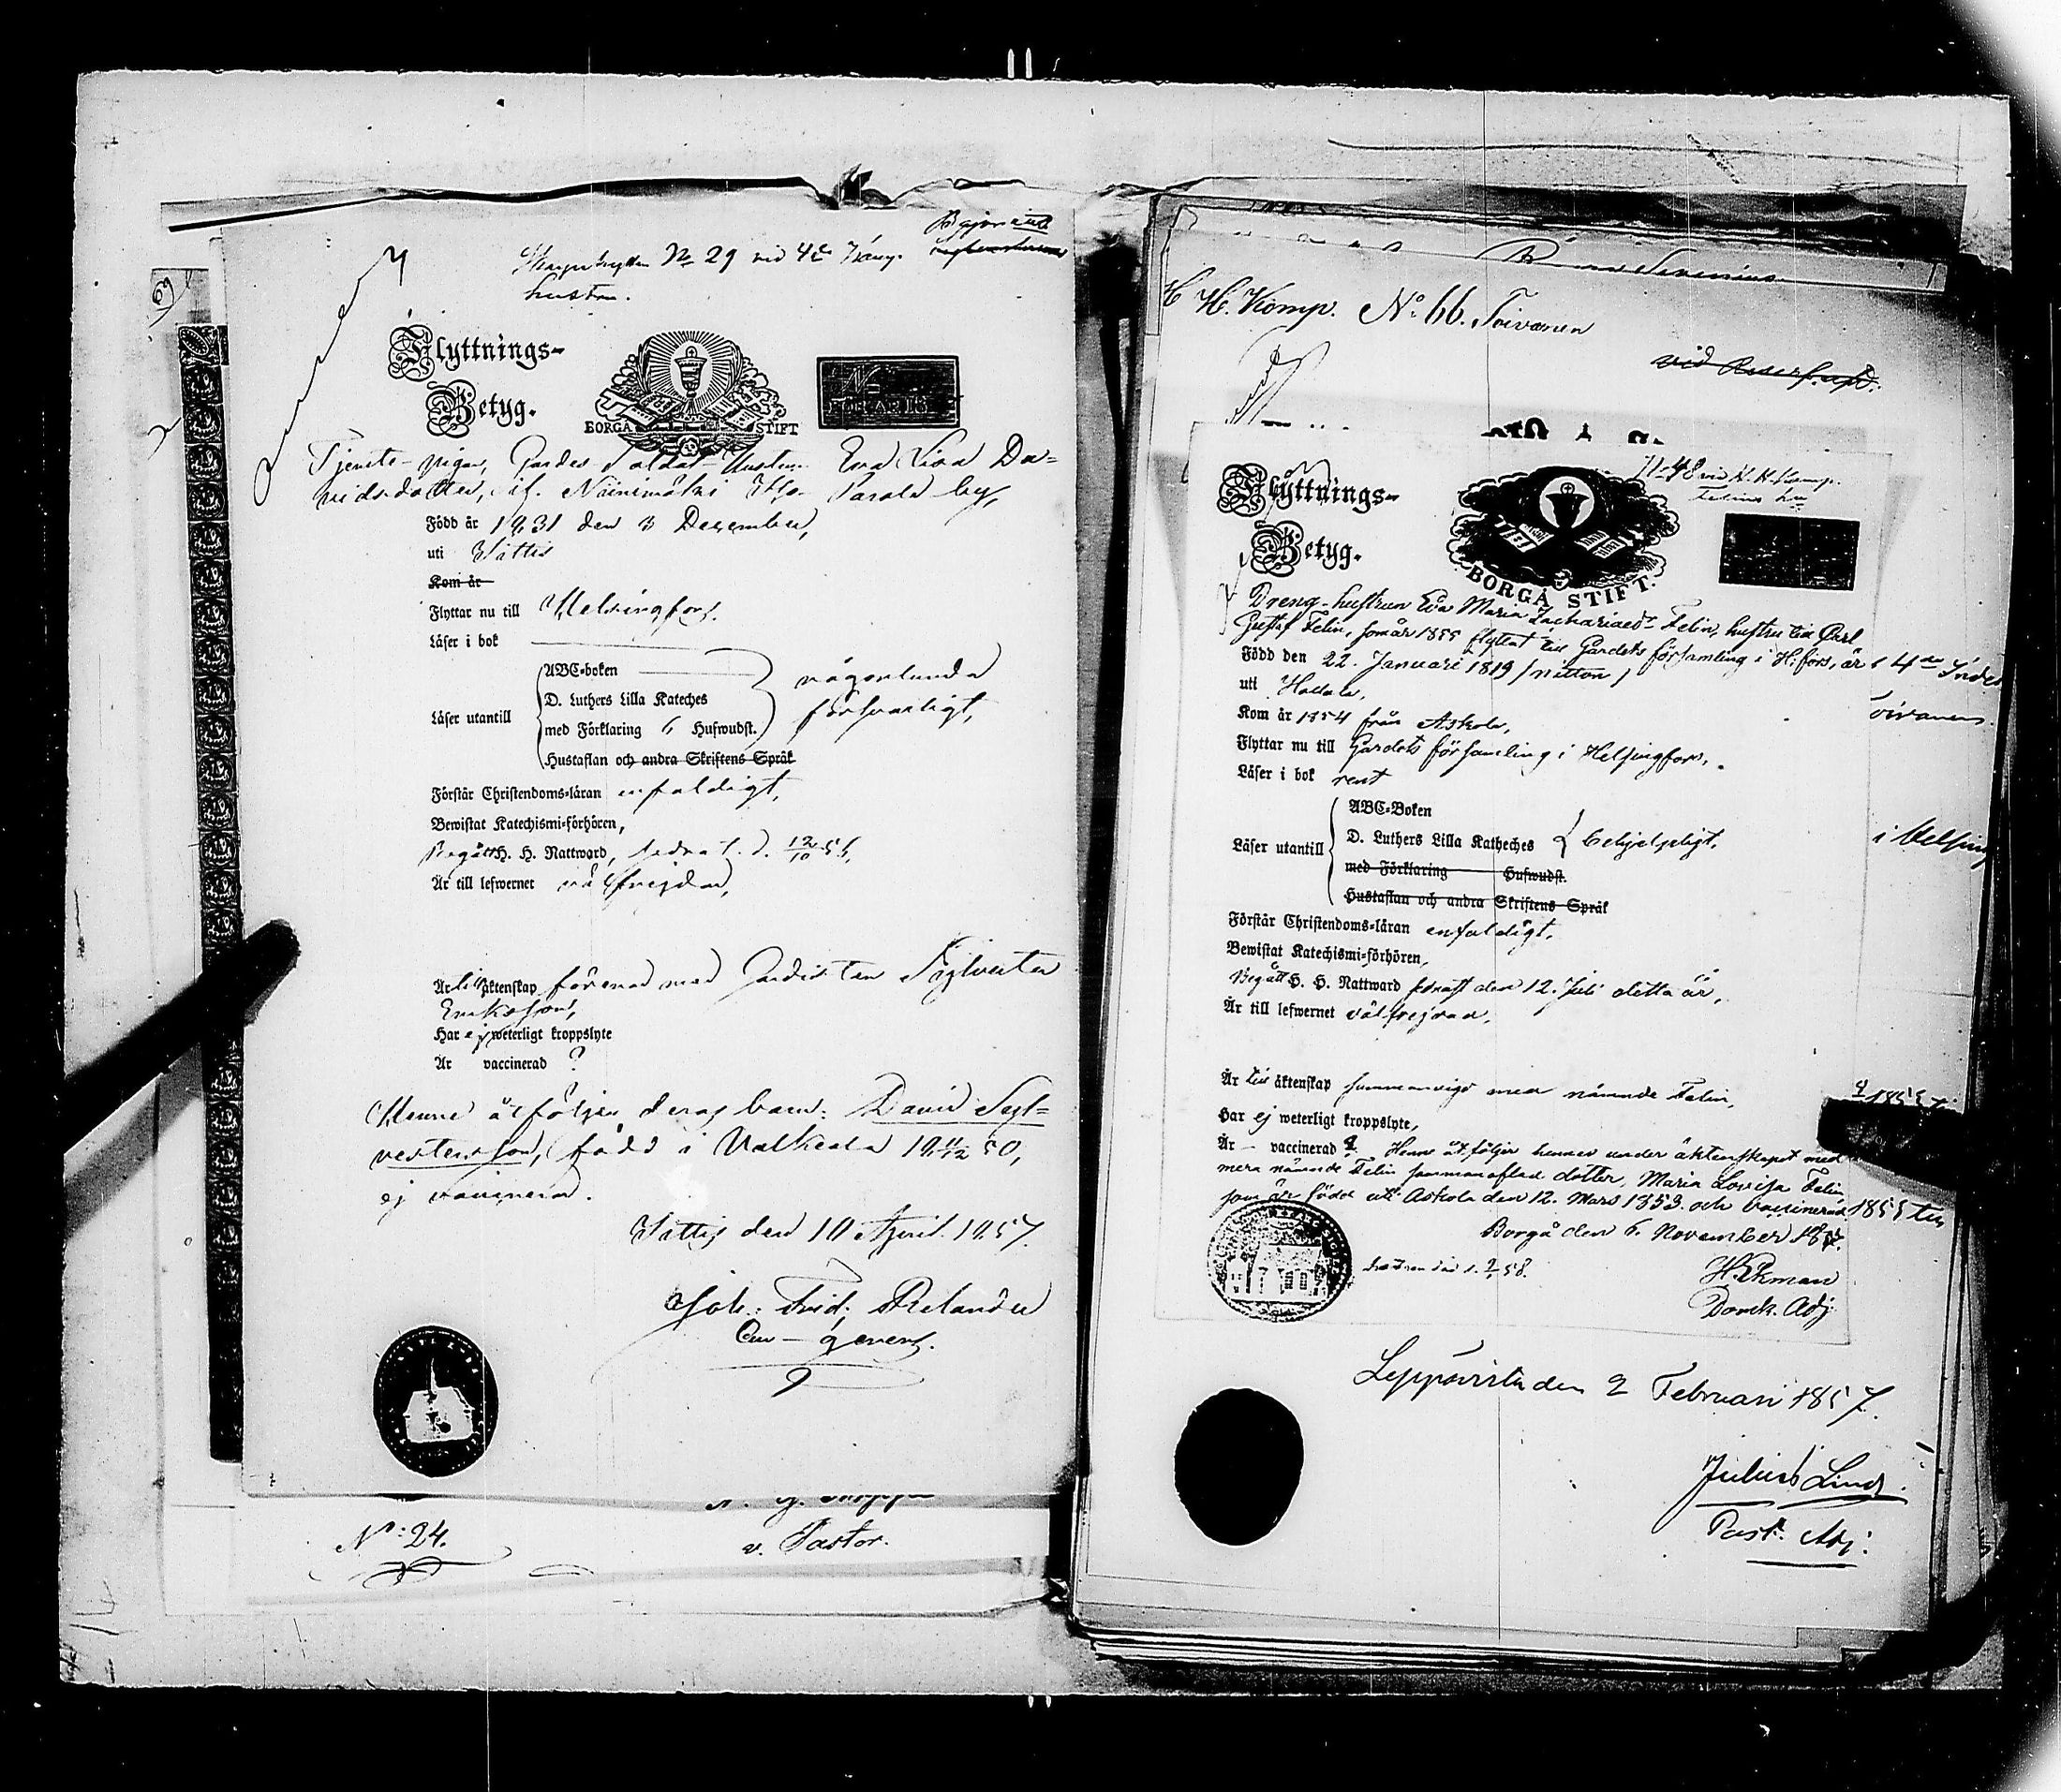 No 29 vid 4de
hustru.
Flyttnings-
Betyg.
BORGÅ STIFT
Tjenste-pigan, Gardes-Soldat-hustrun Eva Lisa Da-
vidsdotter, by,
Född år 1831 den 3 December,
uti Sittis
Kom år
Flyttar nu till Helsingfors.
Läser i bok
ABC-boken
D. Luthers Lilla Kateches
Läser utantill med Förklaring 6 Hufwudst.
någorlunda
försvarligt,
Hustaflan och andra Skriftens Språk
Förstår Christendoms-läran enfaldigt,
Bewistat Katechismi-förhören,
Begått H. H. Nattward, sednast d. 12/10 56,
Är till lefwernet välfrejdad,
Är till äktenskap förenad med Gardisten Sylvester
Eriksson,
Har ej weterligt kroppslyte
Är vaccinerad ?
Henne åtföljer deras barn: David Syl-
vestersson, född i Valkeala 18 11/12 50,
ej vaccinerad.
Sittis den 10 April 1857.
Joh: Fred: Relander
N:o 24.
v. Pastor.
H. Komp. No 66. Toivanen
vid
Flyttnings-
Betyg.
N 48 vid H. H. Komp.
Felins hu
BORGÅ STIFT.
Dreng-hustrun Eva Maria Zachariaedr Felin, hustru till Carl
Gustaf Felin, som år 1855 flyttat till Gardets församling i H:fors, är
Född den 22. Januari 1819 /nitton/
uti Hollola,
Kom år 1854 från Askola,
Flyttar nu till Gardets församling i Helsingfors,
Läser i bok rent
ABC-Boken
Läser utantill D. Luthers Lilla Katheches behjelpligt.
med Förklaring Hufwudst.
Hustaflan och andra Skriftens Språk
Förstår Christendoms-läran enfaldigt,
Bewistat Katechismi-förhören,
Begått H. H. Nattward sednast den 12. Juli detta år,
Är till lefwernet välfrejdad,
Är till äktenskap sammanvigd med nämnde Felin,
Har ej weterligt kroppslyte,
Är – vaccinerad ?. Henne åtföljer hennes under äktenskapet med
mera nämnde Felin sammanaflad dotter, Maria Lovisa Felin,
som är född uti Askola den 12. Mars 1853. och vaccinerad.
Borgå den 6. November 1857.
H. Ekman
Domk. Adj.
Toivanen
i Helsing
Leppävirta den 2 Februari 1857.
Julius Lind.
Past. Adj: